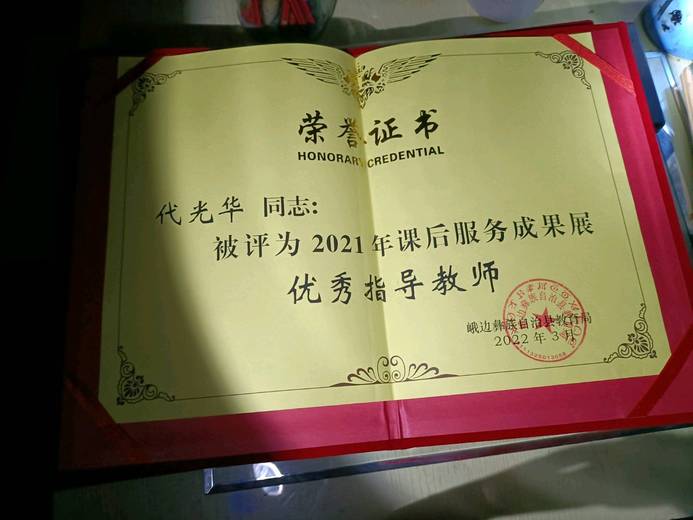 荣誉证书
HONORARY CREDENTIAL
代光华 同志:
被评为 2021年课后服务成果展
优秀指导教师
峨边彝族自治县教育局
2022 年 3 月